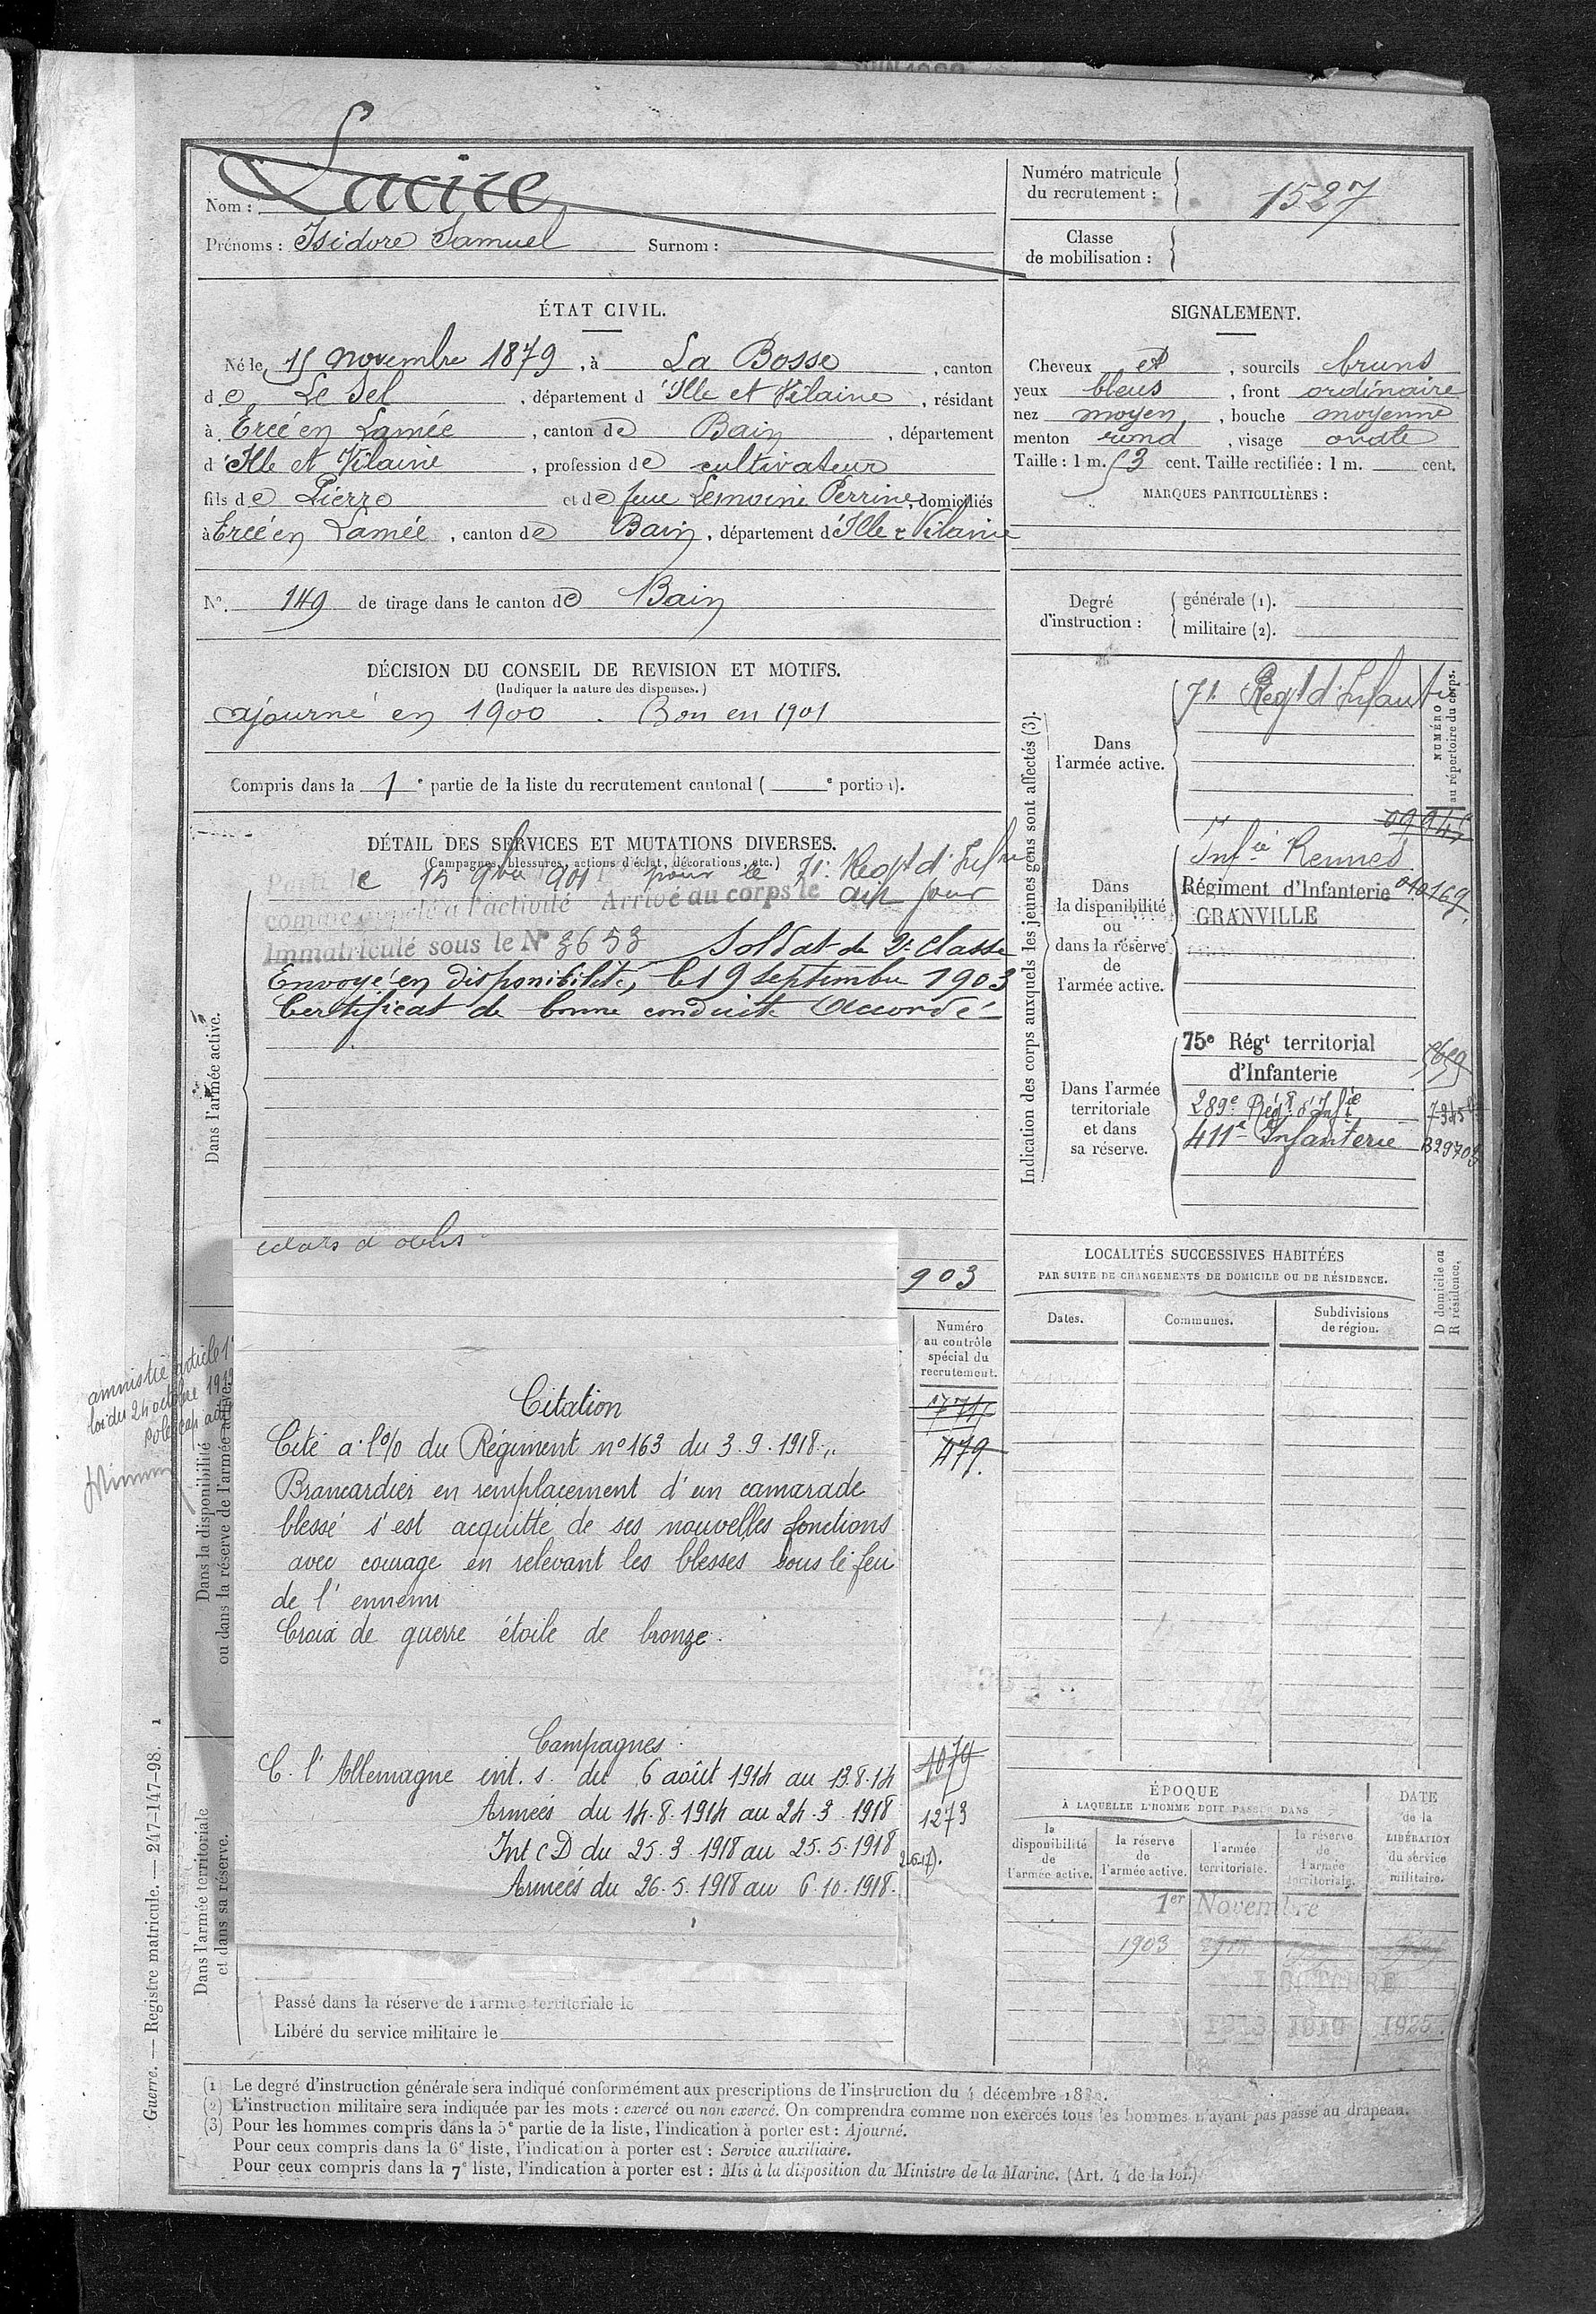 Nom : Lacire
Prénoms : Isidore Samuel Surnom :
Numéro matricule
du recrutement : 1527
Classe
de mobilisation :
ÉTAT CIVIL.
Né le 15 novembre 1879, à La Bosse, canton
de Le Sel, département d'Ille et Vilaine, résidant
à Ercé en Lamée, canton de Bain, département
d'Ille et Vilaine, profession de cultivateur
fils de Pierre et de feue Lemoine Perrine, domiciliés
à Ercé en Lamée, canton de Bain, département d'Ille & Vilaine
N° 149 de tirage dans le canton de Bain
SIGNALEMENT.
Cheveux et, sourcils bruns
yeux bleus, front ordinaire
nez moyen, bouche moyenne
menton rond, visage ovale
Taille : 1 m. 53 cent. Taille rectifiée : 1 m. cent.
MARQUES PARTICULIÈRES :
Degré
d'instruction :
générale (1).
militaire (2).
DÉCISION DU CONSEIL DE REVISION ET MOTIFS.
(Indiquer la nature des dispenses.)
ajourné en 1900. Bon en 1901
Compris dans la 1e partie de la liste du recrutement cantonal ( e portion).
DÉTAIL DES SERVICES ET MUTATIONS DIVERSES.
(Campagnes, blessures, actions d'éclat, décorations, etc.)
Parti le 15 9bre 1901 pour le 71e Regt d'Infrie
comme appelé à l'activité Arrivé au corps le dit jour
Immatriculé sous le N° 3653 Soldat de 2e classe
Envoyé en disponibilité, le 19 septembre 1903
Certificat de bonne conduite Accordé
Dans l'armée active.
Indication des corps auxquels les jeunes gens sont affectés (3).
NUMÉRO
au répertoire du corps.
Dans
l'armée active.
71. Regt d'Infant
Dans
la disponibilité
ou
dans la réserve
de
l'armée active.
Infie Rennes
Régiment d'Infanterie 010169
GRANVILLE
Dans l'armée
territoriale
et dans
sa réserve.
75e Régt territorial
d'Infanterie
289e Régt d'Infie
411e Infanterie
éclats d'obus
903
Numéro
au contrôle
spécial du
recrutement.
479.
1079
1273
amnistié article 1
loi du 24 octobre 1919
Citation
Cité à l'o/o du Régiment n° 163 du 3.9.1918 "
Brancardier en remplacement d'un camarade
blessé s'est acquitté de ses nouvelles fonctions
avec courage en relevant les blesses sous le feu
de l'ennemi
Croix de guerre étoile de bronze.
Campagnes
C. l'Allemagne int. s. du 6 août 1914 au 13.8.14
Armées du 14.8.1914 au 24.3.1918
Int C D du 25.3.1918 au 25.5.1918
Armées du 26.5.1918 au 6.10.1918.
Dans la disponibilité
ou dans la réserve de l'armée active.
Dans l'armée territoriale
et dans sa réserve.
Passé dans la réserve de l'armée territoriale le
Libéré du service militaire le
LOCALITÉS SUCCESSIVES HABITÉES
PAR SUITE DE CHANGEMENTS DE DOMICILE OU DE RÉSIDENCE.
Dates. Communes. Subdivisions
de région.
D domicile ou
R résidence.
ÉPOQUE
À LAQUELLE L'HOMME DOIT PASSER DANS
DATE
de la
LIBÉRATION
du service
militaire.
la
disponibilité
de
l'armée active.
la réserve
de
l'armée active.
l'armée
territoriale.
la réserve
de
l'armée
territoriale.
1er Novembre
1903
1 OCTOBRE
1913 1919 1925
Guerre. — Registre matricule. — 247-147-98. 1
(1) Le degré d'instruction générale sera indiqué conformément aux prescriptions de l'instruction du 4 décembre
(2) L'instruction militaire sera indiquée par les mots : exercé ou non exercé. On comprendra comme non exercés tous les hommes n'ayant pas passé au drapeau.
(3) Pour les hommes compris dans la 5e partie de la liste, l'indication à porter est : Ajourné.
Pour ceux compris dans la 6e liste, l'indication à porter est : Service auxiliaire.
Pour ceux compris dans la 7e liste, l'indication à porter est : Mis à la disposition du Ministre de la Marine. (Art. 4 de la loi.)